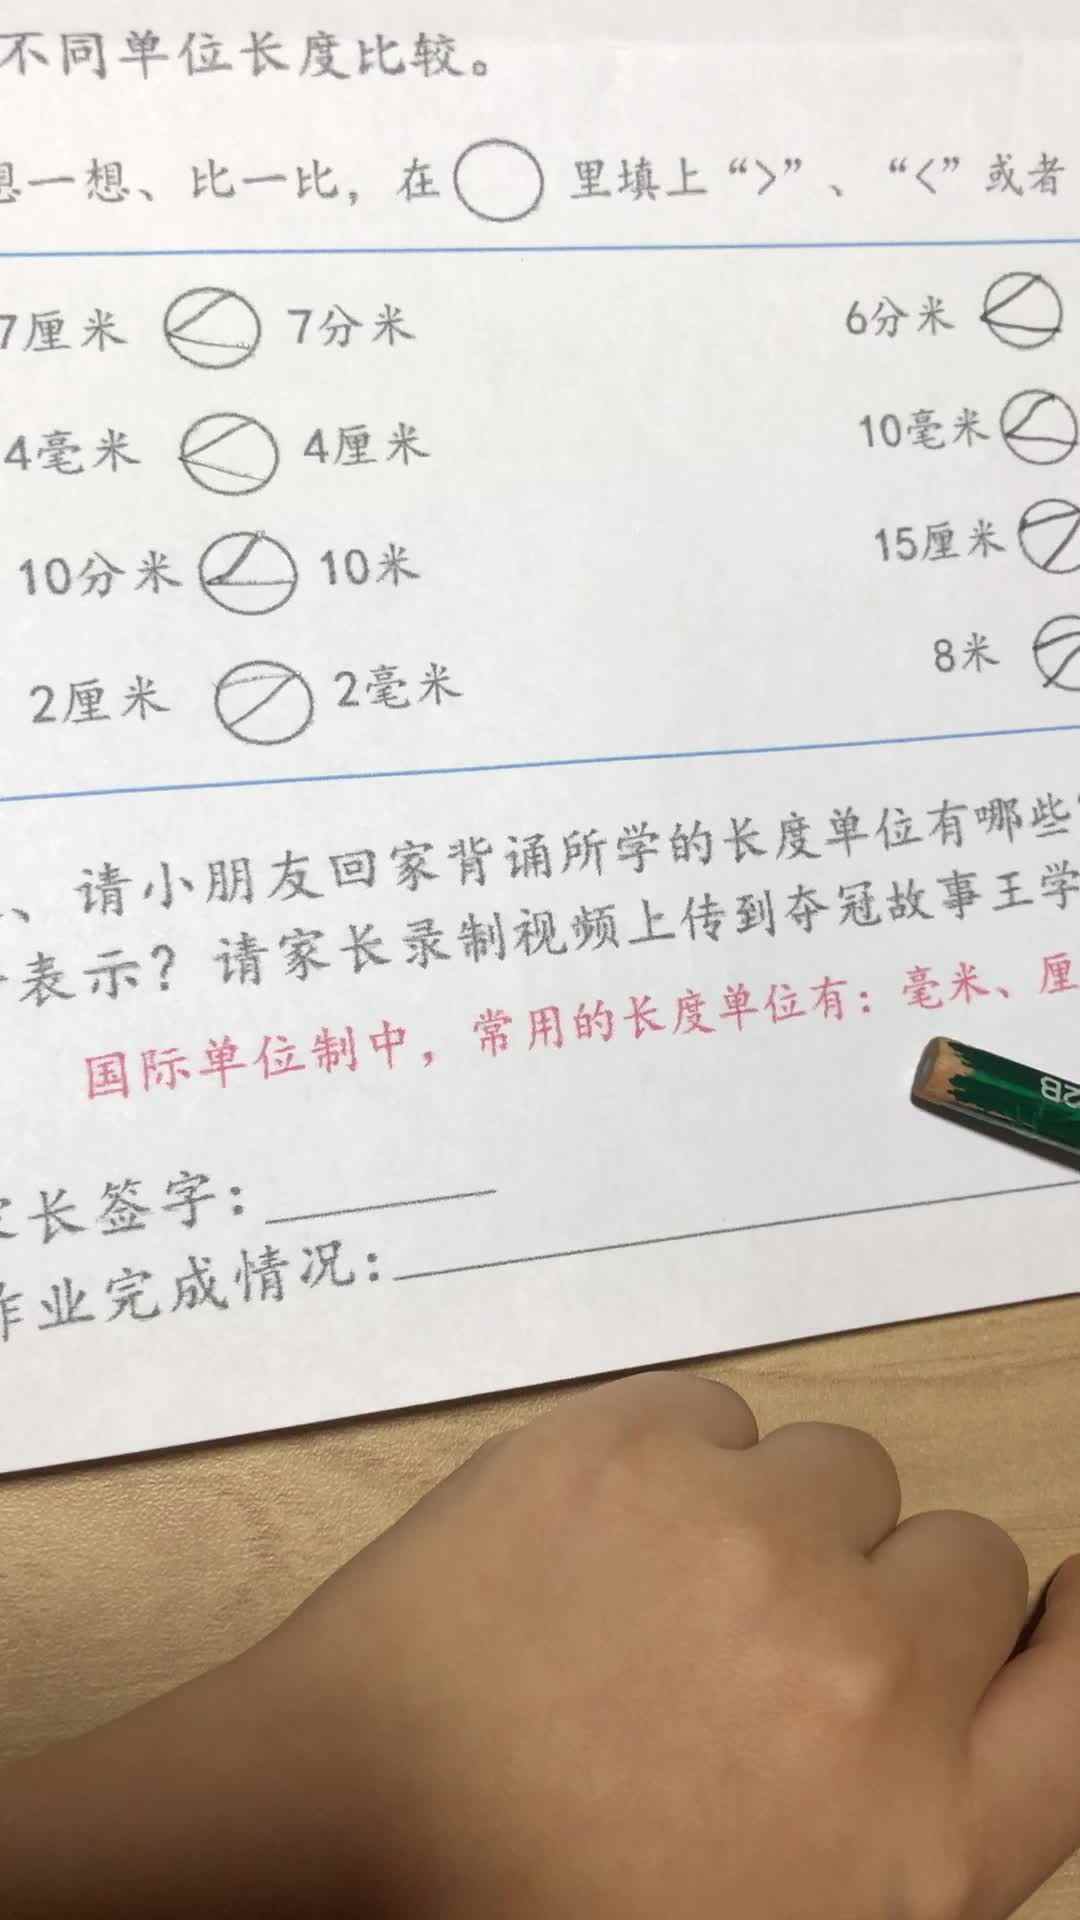 不同单位长度比较。
想一想、比一比，在○里填上“>”、“<”或者
7厘米 < 7分米 6分米 <
4毫米 < 4厘米 10毫米 <
10分米 < 10米 15厘米 >
2厘米 > 2毫米 8米 >
、请小朋友回家背诵所学的长度单位有哪些
表示？请家长录制视频上传到夺冠故事王学
国际单位制中，常用的长度单位有：毫米、厘
2B
家长签字：
作业完成情况：